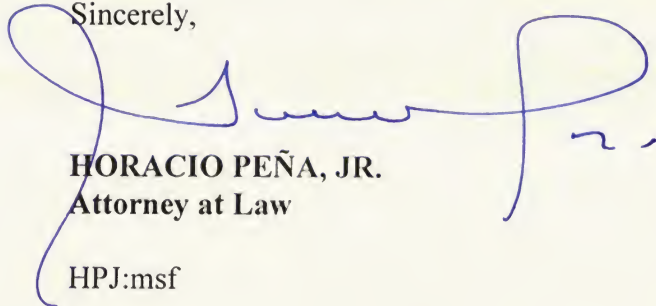 Sincerely,
HORACIO PEÑA, JR.
Attorney at Law
HPJ:msf